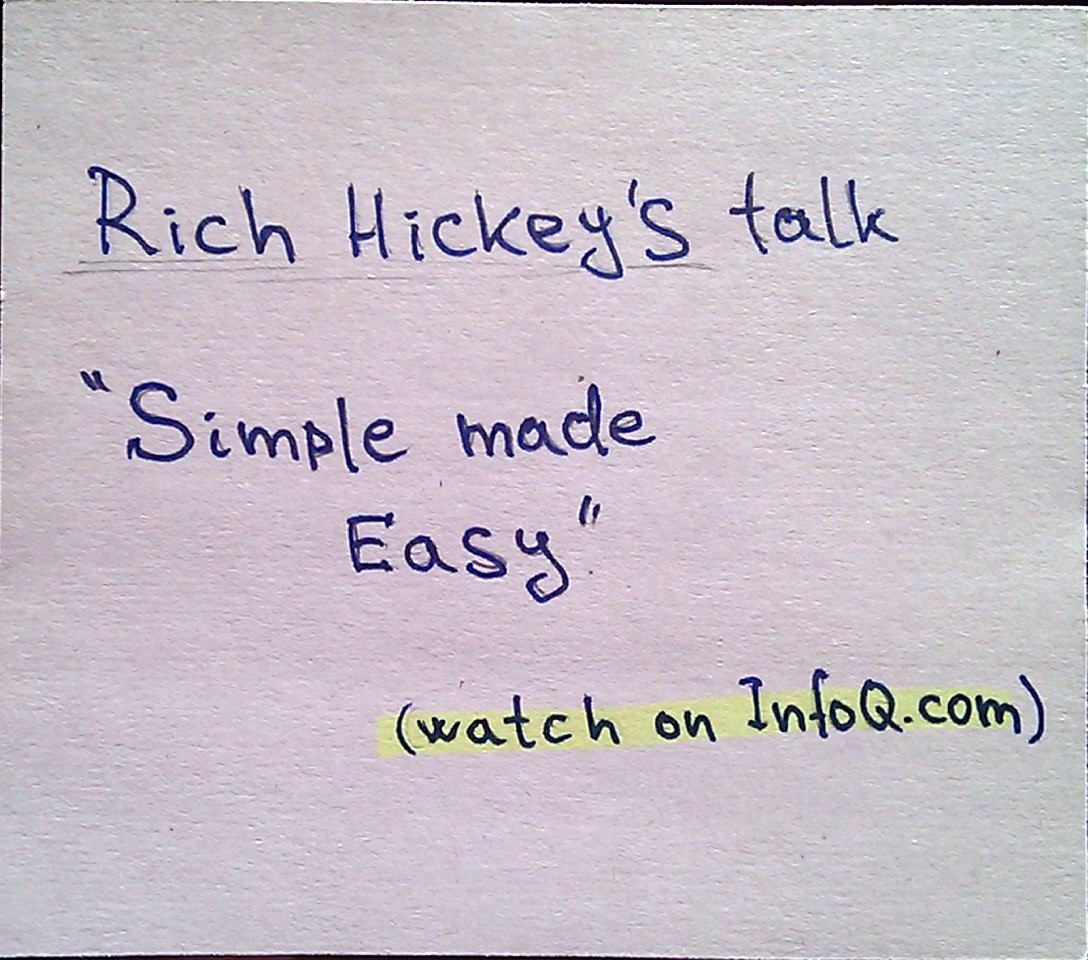 Rich Hickey's talk
"Simple made
Easy"
(watch on InfoQ.com)